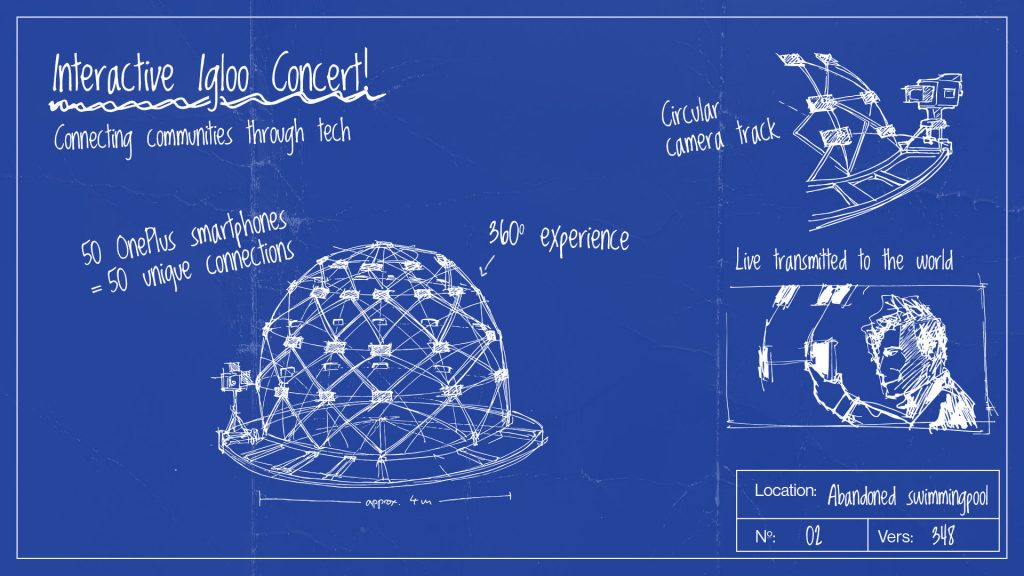 Interactive Igloo Concert!
Connecting communities through tech
50 OnePlus smartphones
= 50 unique connections
360° experience
approx. 4m
Circular
camera track
Live transmitted to the world
Location: Abandoned swimmingpool
Nº: 02 Vers: 348